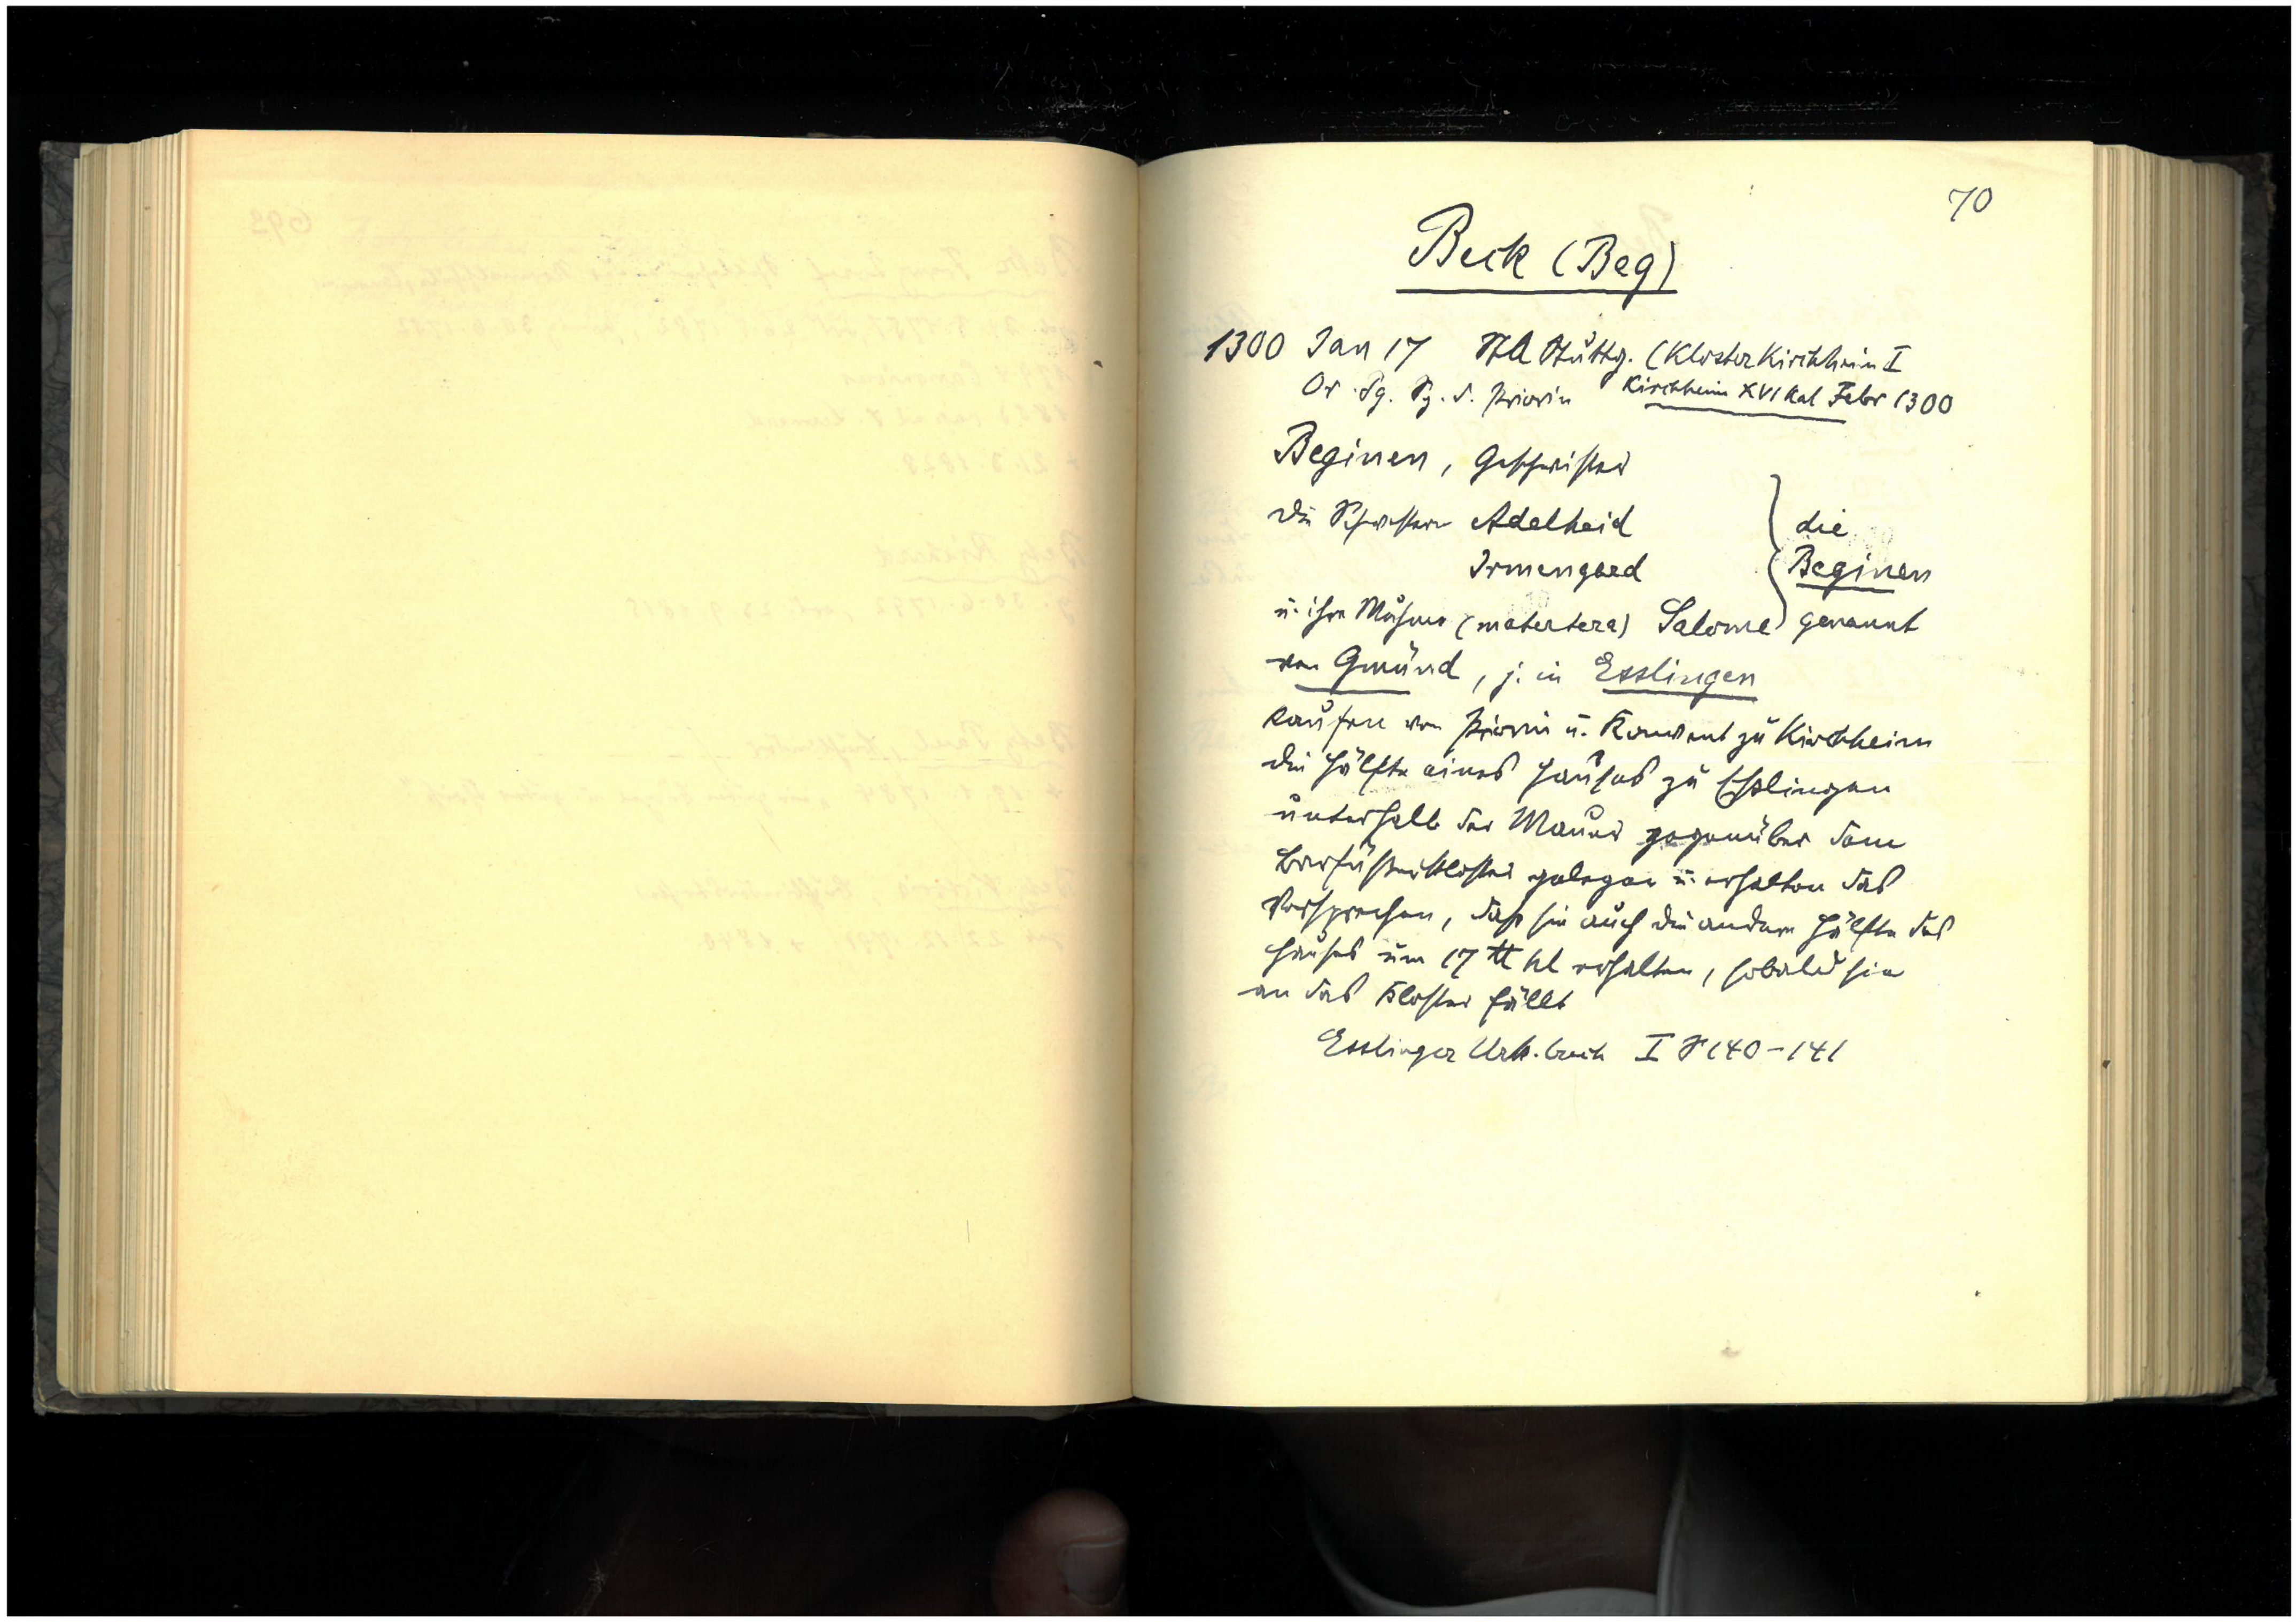 70
Beck (Beg)
1300 Jan 17 StA Stuttg. (Kloster Kirchheim I
Or. Pg. Sg. d. Priorin Kirchheim XVI Kal Febr 1300
Beginen, Geschwister
die Schwestern Adelheid } die
Irmengard Beginen
u. ihre Muhme (matertera) Salome genannt
von Gmünd, j. in Esslingen
kaufen von Priorin u. Konvent zu Kirchheim
die Hälfte eines Hauses zu Esslingen
unterhalb der Mauer gegenüber dem
Barfüsserkloster gelegen u. erhalten das
Versprechen, dass sie auch die andere Hälfte des
Hauses um 17 ℔ hl erhalten, sobald sie
an das Kloster fällt
Esslinger Urk.buch I S 140-141